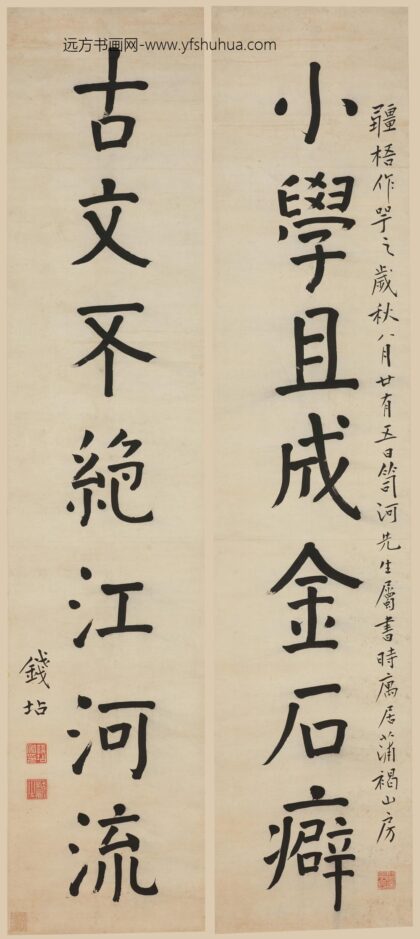 远方书画网-www.yfshuhua.com
疆梧作咢之歲秋八月廿有五日笥河先生屬書時寓居蒲褐山房
小學且成金石癖
古文不絕江河流
錢坫